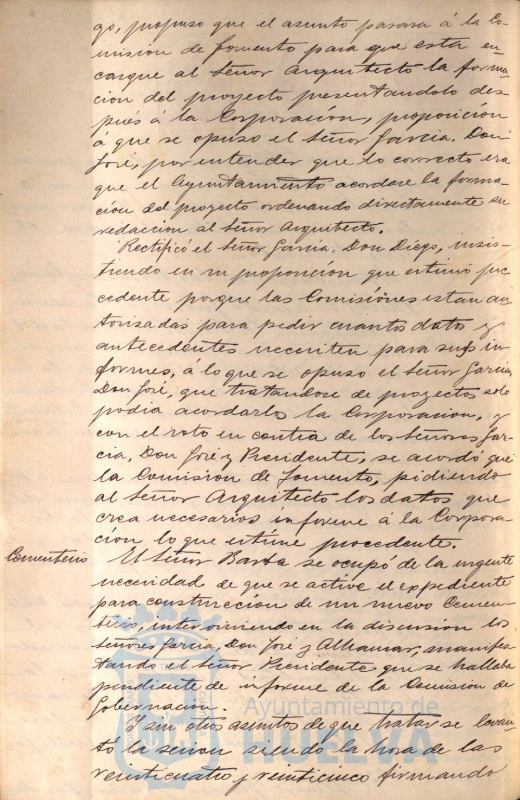 go, propuso que el asunto pasara á la Co-
mision de fomento para que esta en-
cargue al Señor Arquitecto la forma-
cion del proyecto presentandolo des-
pués á la Corporación, proposición
á que se opuso el Señor Garcia, Don
José, por entender que lo correcto era
que el Ayuntamiento acordase la forma-
ción del proyecto ordenando directamente su
redaccion al Señor Arquitecto.
Rectificó el Señor Garcia, Don Diego, insis-
tiendo en su proposicion que estimó pro-
cedente porque las Comisiónes estan au-
torisadas para pedir cuantos datos y
antecedentes necesiten para sus in-
formes, a lo que se opuso el Señor Garcia,
Don José, que tratandose de proyectos solo
podia acordarlos la Corporacion, y
con el voto en contra de los Señores Gar-
cia, Don José y Presidente, se acordó que
la Comision de Fomento, pidiendo
al Señor Arquitecto los datos que
crea necesarios informe á la Corpora-
ción lo que estime procedente.
Cementerio
El Señor se ocupó de la urgente
necesidad de que se active el expediente
para construccion de un nuevo Cemen-
terio, interviniendo en la discusion los
señores Garcia, Don José y Alhamar, manifes-
tando el Señor Presidente que se hallaba
pendiente de informe de la Comision de
Gobernacion.
Y sin otros asuntos de que tratar se levan-
tó la sesion siendo la hora de las
veinticuatro y veinticinco firmando
Ayuntamiento de
HUELVA